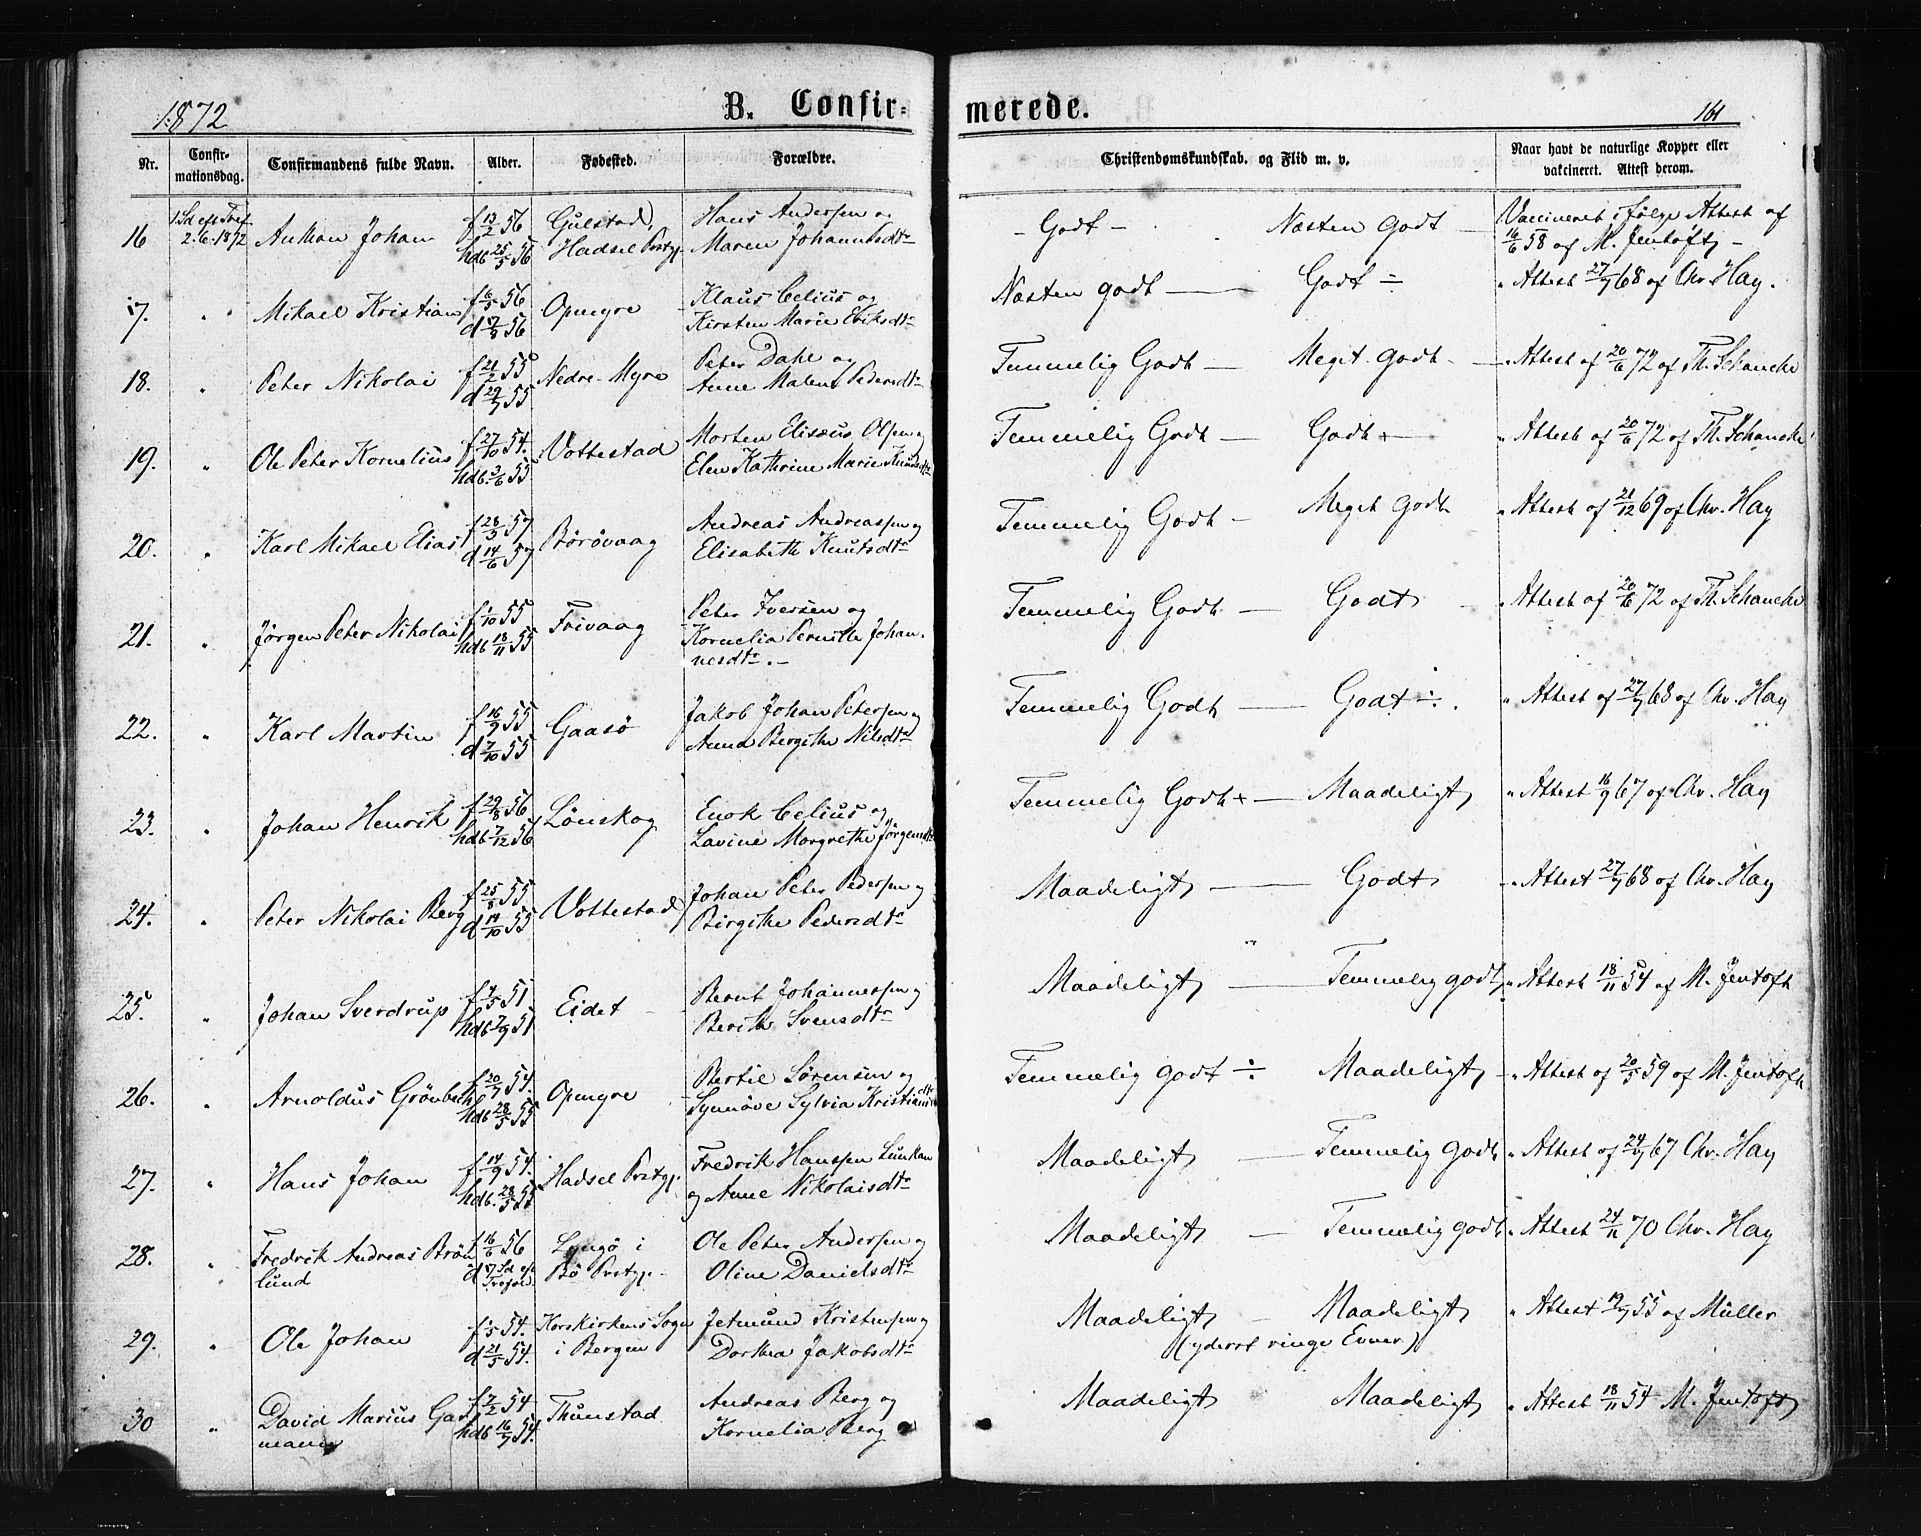 1872
B. Confir-
merede.
161
Nr.
Confir-
mationsdag.
Confirmandens fulde Navn.
Alder.
Fødested.
Forældre.
Christendomskundskab. og Flid m. v.
Naar havt de naturlige Kopper eller
vakcineret. Attest derom.
16 1 Sd eft Tref. 2.6.1872 Johan f 13/2 56 hdb 25/5 56 Gulstad, Hadsel Prstgj. Hans Andersen og Maren Johann dtr - Godt - Næsten godt - Vaccineret ifølge Attest af 16/6 58 af M. Jentoft -
17. " Mikael Kristian f 6/5 56 d 17/8 56 Opmyre Klaus Celius og Kirsten Marie Eriksdtr Næsten godt - Godt ÷ " Attest 27/7 68 af Chr. Hay.
18. " Peter Nikolai f 21/2 55 d 29/7 55 Nedre-Myre Peter Dahl og Anne Malene Pedersdtr Temmelig Godt - Meget godt - " Attest af 20/6 72 af Th. Schancke
19. " Ole Peter Kornelius f 27/10 54. hdb. 3/6 55 Vottestad Morten Elisæus Olsen og Elen Kathrine Marie Knudsdtr Temmelig Godt - Godt + - " Attest af 20/6 72 af Th. Schancke
20. " Karl Mikael Elias f 28/3 57 d 14/6 57 Börövaag Andreas Andreassen og Elisabeth Knutsdtr Temmelig Godt - Meget Godt " Attest af 21/12 69 af Chr. Hay
21. " Jørgen Peter Nikolai f 1/10 55 hdb 18/11 55 Frivaag Peter Iversen og Kornelia Pernille Johan- nesdtr. - Temmelig Godt - Godt " Attest af 20/6 72 af Th. Schancke
22. " Karl Martin f 16/9 55 d 7/10 55 Gaasö Jakob Johan Petersen og Anna Bergithe Nilsdtr Temmelig Godt - Godt ÷. " Attest af 27/7 68 af Chr. Hay
23. " Johan Henrik f 29/8 56 hdb 7/12 56 Lönskog Enok Celius og Lavine Margrethe Jörgensdtr Temmelig Godt + - Maadeligt " Attest 16/9 67 af Chr. Hay
24. " Peter Nikolai Berg f 25/8 55 d 14/10 55 Vottestad Johan Peter Pedersen og Birgithe Pedersdtr Maadeligt - Godt " Attest 27/7 68 af Chr. Hay
25. " Johan Sverdrup f 7/5 51. hdb 7/9 51 Eidet Bernt Johannessen og Berith Svensdtr Maadeligt - Temmelig godt " Attest 18/11 54 af M. Jentoft
26. " Arnoldus Grönbech f 20/7 54. hdb 28/5 55 Opmyre Bertil Sörensen og Synnöve Sylvia Kristiansdtr Temmelig godt ÷ Maadeligt - " Attest af 20/5 59 af M. Jentoft
27. " Hans Johan f 14/9 54. hdb. 28/5 55 Hadsel Prstgj. Fredrik Hanssen Lunkan og Anne Nikolaisdtr Maadeligt - Temmelig Godt " Attest af 24/7 67 Chr. Hay
28. " Fredrik Andreas Brön- lund f 16/6 56 d 17 Sd eft Trefol. Lyngö i Bö Prstgj. Ole Peter Andersen og Oline Danielsdtr Maadeligt - Temmelig godt " Attest 24/11 70 Chr. Hay
29. " Ole Johan f 1/5 54. d 21/5 54. Korskirkens Sogn i Bergen Jetmund Kristensen og Dorthea Jakobsdtr Maadeligt - Maadeligt (yderst ringe Evner) " Attest 19/7 55 af Müller
30 " David Marius Gar- mann f 7/2 54 hdb 16/7 54. Thunstad Andreas Berg og Kornelia Berg Maadeligt Maadeligt " Attest 18/11 54 M. Jentoft